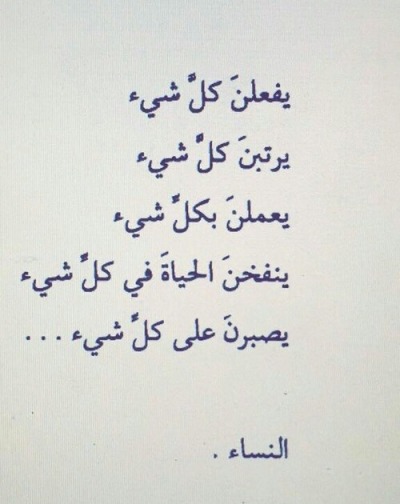 يفعلنَ كلَّ شيء
يرتبنَ كلَّ شيء
يعملنَ بكلِّ شيء
ينفخنَ الحياةَ في كلِّ شيء
يصبرنَ على كلِّ شيء ...
النساء .